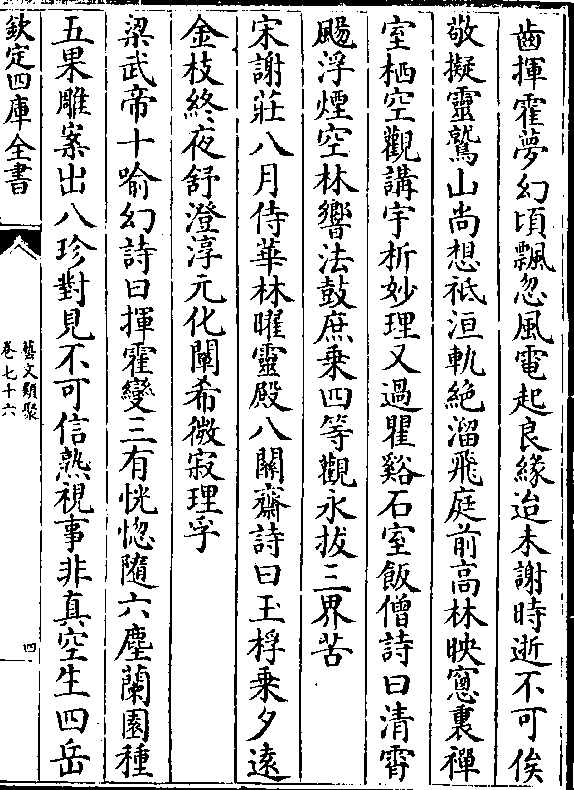 齒揮霍夢幻頃飄忽風電起良緣迨未謝時逝不可俟
敬擬靈鷲山尚想祗洹軌絶溜飛庭前高林映窻裏禪
室栖空觀講宇析妙理又過瞿谿石室飯僧詩曰清霄
颺浮煙空林響法鼓庶乗四等觀永拔三界苦
宋謝莊八月侍華林曜靈殿八關齋詩曰玉桴乗夕遠
金枝終夜舒澄淳元化闡希微寂理孚
梁武帝十喻幻詩曰揮霍變三有恍惚隨六塵蘭園種
五果雕案出八珍對見不可信熟視事非真空生四岳
欽定四庫全書
藝文類聚
卷七十六
四